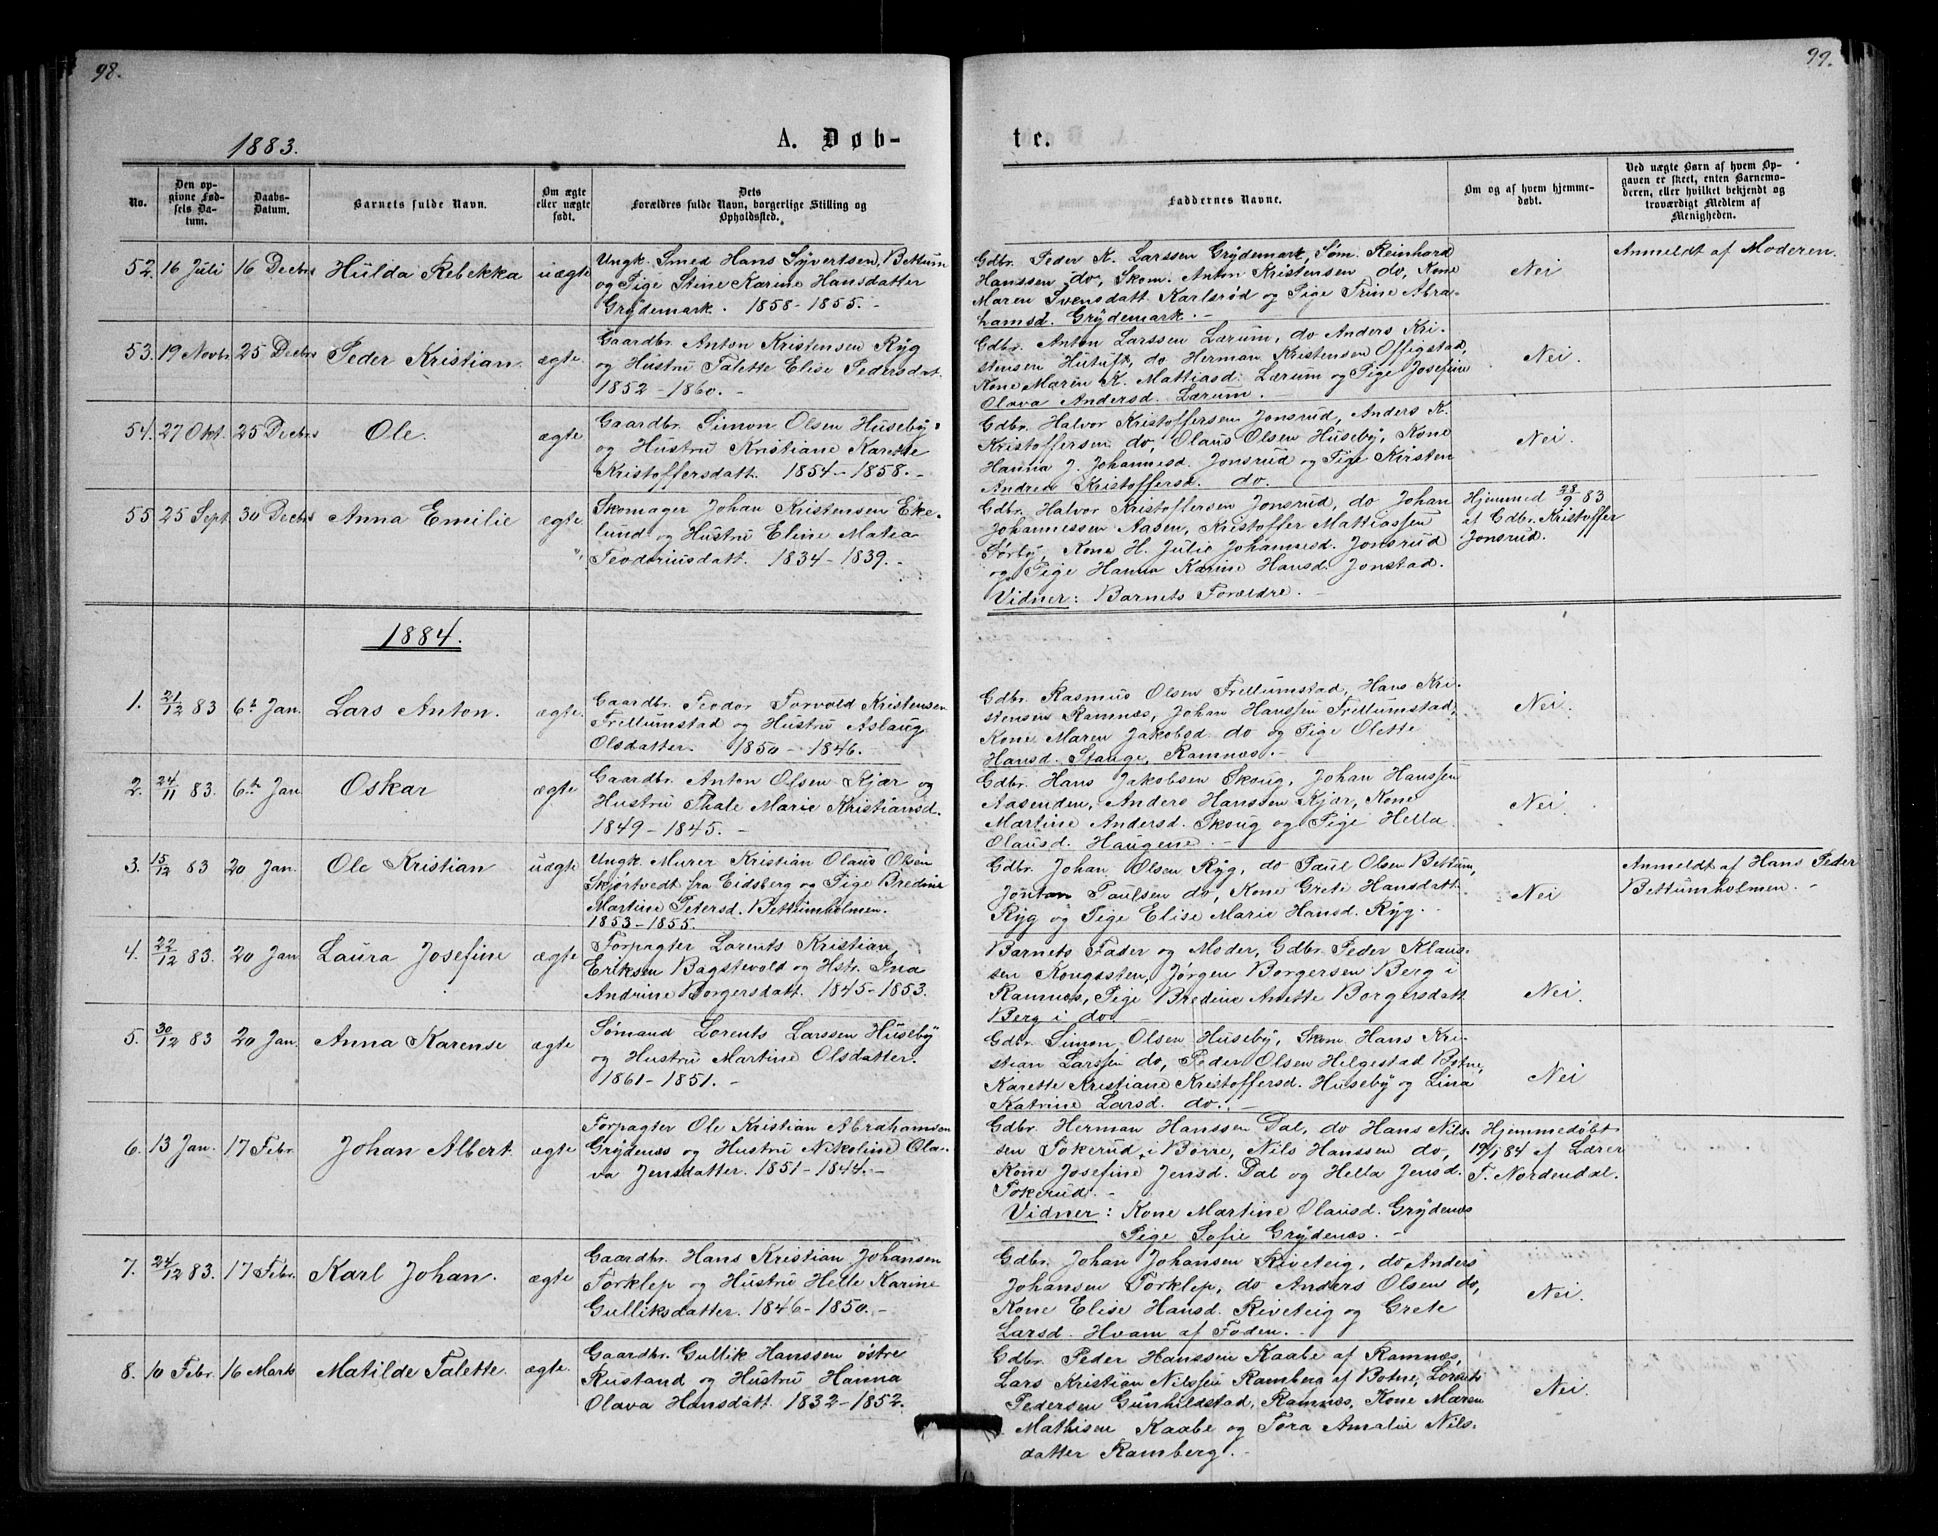 98.
99.
1883.
A. Døb-
te.
No.
Den op-
givne Fød-
sels Da-
tum.
Daabs-
Datum.
Barnets fulde Navn.
Om ægte
eller uægte
født.
Dets
Forældres fulde Navn, borgerlige Stilling og
Opholdssted.
Faddernes Navne.
Om og af hvem hjemme-
døbt.
Ved uægte Børn af hvem Op-
gaven er skeet, enten Barnemo-
deren, eller hvilket bekjendt og
troværdigt Medlem af
Menigheden.
52. 16 Juli 16 Decbr Hulda Rebekka uægte
Ungk. Smed Hans Syvertsen, Bettum
og Pige Stine Karine Hansdatter
Grydemark. 1858-1855. -
Gdbr. Peder K. Larssen Grydemark, Søm. Reinhard
Hanssen do, Skom. Anton Kristensen do, Kone
Maren Svensdatt. Karlsrød og Pige Trine Abra-
hamsd. Grydemark. -
Nei
Anmeldt af Moderen.
53. 19 Novbr 25 Decbr Peder Kristian ægte
Gaardbr. Anton Kristensen Ryg
og Hustru Talette Elise Pedersdat.
1852-1860. -
Gdbr. Anton Larssen Lærum, do Anders Kri-
stensen Hutvit, do Herman Kristensen Offigstad,
Kone Maren K. Mattiasd. Lærum og Pige Josefine
Olava Andersd. Lærum. -
Nei.
54. 27 Okt. 25 Decbr Ole. ægte
Gaardbr. Simon Olsen Huseby
og Hustru Kristiane Karette
Kristoffersdatt. 1854-1858. -
Gdbr. Halvor Kristoffersen Jonsrud, Anders K.
Kristoffersen do, Olaus Olsen Huseby, Kone
Hanna J. Johannesd. Jonsrud og Pige Kirsten
Andrea Kristoffersd. do. -
Nei.
55 25 Sept 30 Decbr Anna Emilie ægte
Skomager Johan Kristensen Eke-
lund og Hustru Eline Matea
Teodoriusdatt. 1834-1839. -
Gdbr. Halvor Kristoffersen Jonsrud, do Johan
Johannessen Aasen, Kristoffer Mattiassen
Sørby, Kone H. Julie Johannesd. Jonsrud
og Pige Hanna Karine Hansd. Jonstad.
Vidner: Barnets Forældre. -
Hjemmed 28/9 83
af Gdbr. Kristoffer
Jonsrud.
1884.
1. 21/12 83 6te Jan. Lars Anton. ægte.
Gaardbr. Teodor Torvald Kristensen
Trellumstad og Hustru Aslaug
Olsdatter. 1850-1846. -
Gdbr. Rasmus Olsen Trellumstad, Hans Kri-
stensen Ramnæs, Johan Hanssen Trellumstad,
Kone Maren Jakobsd do og Pige Olette
Hansd. Stange, Ramnæs. -
Nei.
2. 24/11 83. 6te Jan Oskar ægte
Gaardbr. Anton Olsen Kjær og
Hustru Thale Marie Kristiansd.
1849-1845. -
Gdbr. Hans Jakobsen Skoug, Johan Hanssen
Aasenden, Anders Hanssen Kjær, Kone
Martine Andersd. Skoug og Pige Hella
Olausd. Haugene. -
Nei.
3. 15/12 83 20 Jan. Ole Kristian uægte
Ungk. Murer Kristian Olaus Olsen
Skjortvedt fra Eidsberg og Pige Bredine
Martine Petersd. Bettumholmen.
1853-1855.
Gdbr. Johan Olsen Ryg, do Paul Olsen Bettum,
Jontan Paulsen do, Kone Grete Hansdatt.
Ryg og Pige Elise Marie Hansd. Ryg. -
Nei
Anmeldt af Hans Peder
Bettumholmen. -
4. 22/12 83. 20 Jan Laura Josefine ægte
Forpagter Lorents Kristian
Eriksen Bagstevold og Hstr. Ina
Andrine Borgersdatt. 1845-1853.
Barnets Fader og Moder, Gdbr. Peder Klaus-
sen Kongssten, Jørgen Borgersen Berg i
Ramnæs, Pige Bredine Anette Borgersdatt
Berg i do. -
Nei.
5. 30/12 83 20 Jan. Anna Karense ægte
Sømand Lorents Larssen Huseby
og Hustru Martine Olsdatter.
1861-1851. -
Gdbr. Simon Olsen Huseby, Skom. Hans Kri-
stian Larssen do, Peder Olsen Helgestad Botne,
Karette Kristiane Kristoffersd. Huseby og Lina
Katrine Larsd. do. -
Nei
6. 13 Jan. 17 Febr. Johan Albert. ægte
Forpagter Ole Kristian Abrahamsen
Grydenæs og Hustru Nikoline Ola-
va Jensdatter. 1851-1844. -
Gdbr. Herman Hanssen Dal, do Hans Nils-
sen Tokerud, i Borre, Nils Hanssen do,
Kone Josefine Jensd. Dal og Hella Jensd.
Tokerud. -
Vidner: Kone Martine Olausd. Grydenæs
Pige Sofie Grydenæs. -
Hjemmedøbt
19/1 84 af Lærer
T. Nordendal.
7. 24/12 83. 17 Febr. Karl Johan. ægte
Gaardbr. Hans Kristian Johansen
Torklep og Hustru Helle Karine
Gulliksdatter. 1846-1850. -
Gdbr. Johan Johansen Riveteig, do Anders
Johansen Torklep, do Anders Olsen do,
Kone Elise Hansd. Riveteig og Grete
Larsd. Hvam af Foden. -
Nei.
8. 10 Febr. 16 Marts Matilde Talette. ægte.
Gaardbr. Gullik Hanssen østre
Rustand og Hustru Hanna
Olava Hansdatt. 1832-1852.
Gdbr. Peder Hanssen Kaabe af Ramnæs,
Lars Kristian Nilssen Ramberg af Botne, Lorents
Pedersen Gunhildstad, Ramnæs, Kone Maren
Mathisen Kaabe og Tora Amalie Nils-
datter Ramberg. -
Nei.